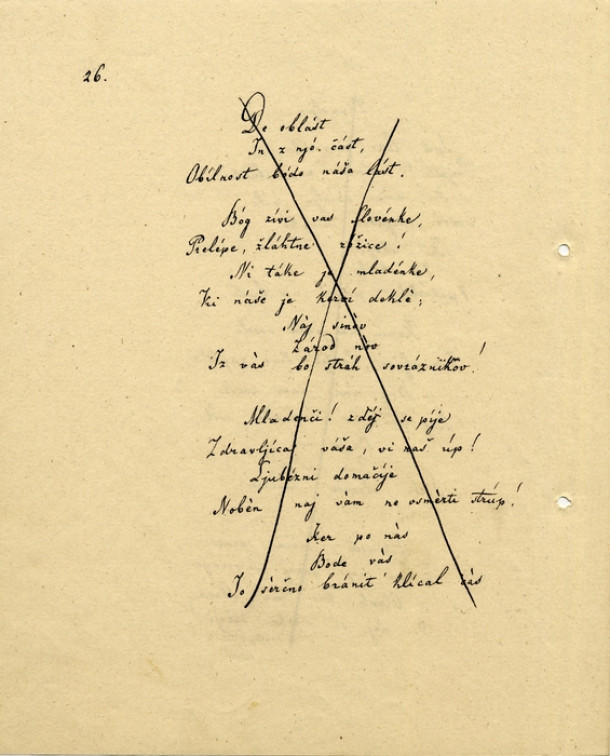 26.
De oblást
In z njó. část,
Obílnost bódo náša lást.
Bóg živi vas Slovénke,
Prelépe, žláhtne róžice!
Ni táke je mladénke,
Ki náše je kerví deklè;
Nàj sinóv
Zárod nòv
Iz vàs bo stráh sovrážnikov!
Mladenči! zdèj se píje
Zdravljica váša, vi naš úp!
Ljubézni domačíje
Nobèn naj vàm ne vsmèrti strúp!
Ker po nàs
Bode vàs
Jo sèrčno bránit' klícal čàs